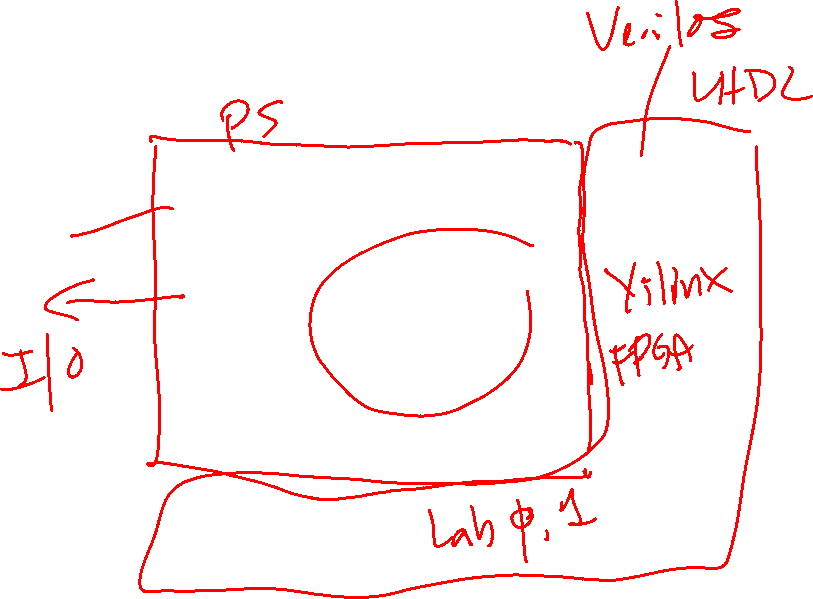 Verilog
VHDL
PS
Xilinx
FPGA
I/O
Lab φ, 1